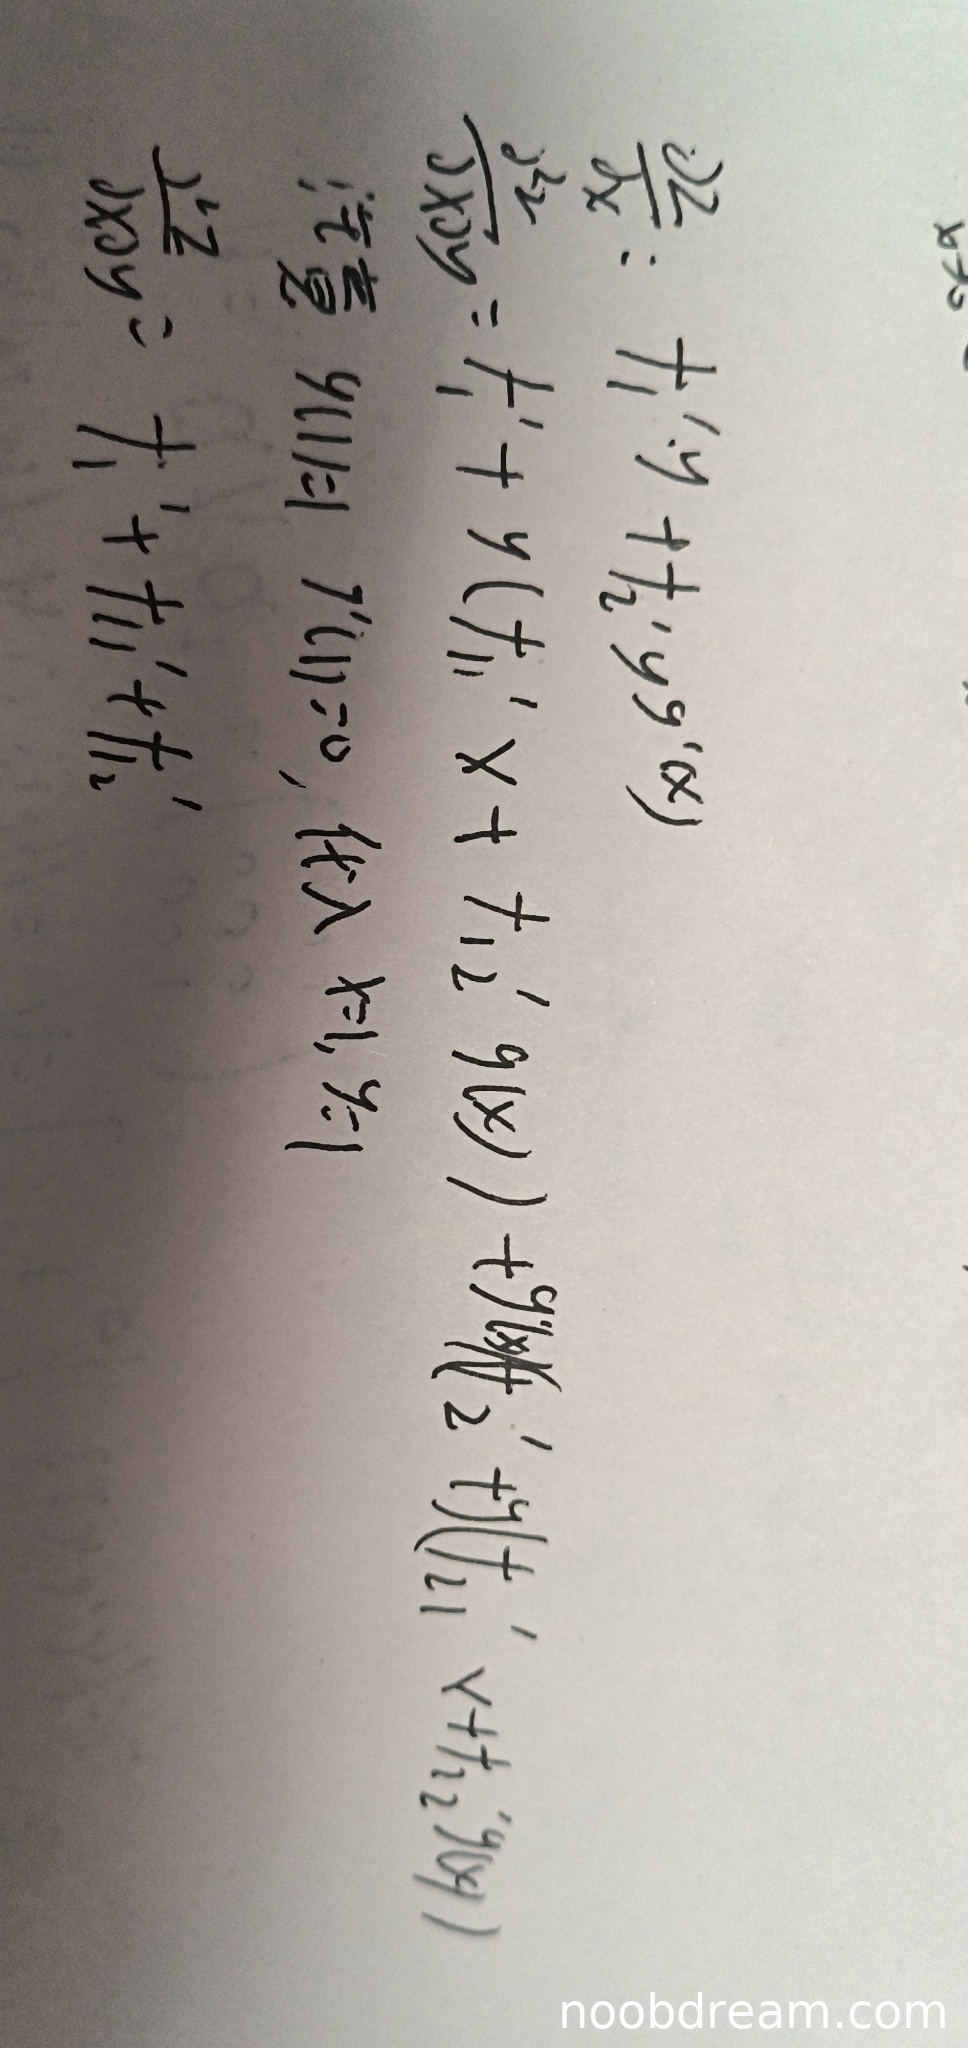 ∂z/∂x : f₁'·y + f₂'yg'(x)
∂²z/∂x∂y = f₁' + y(f₁₁'x + f₁₂'g(x)) + g'(x)(f₂' + y(f₂₁'x + f₂₂'g(x))
注意 g(1)=1 g'(1)=0, 代入 x=1, y=1
∂²z/∂x∂y = f₁' + f₁₁' + f₁₂'
x→0
noobdream.com